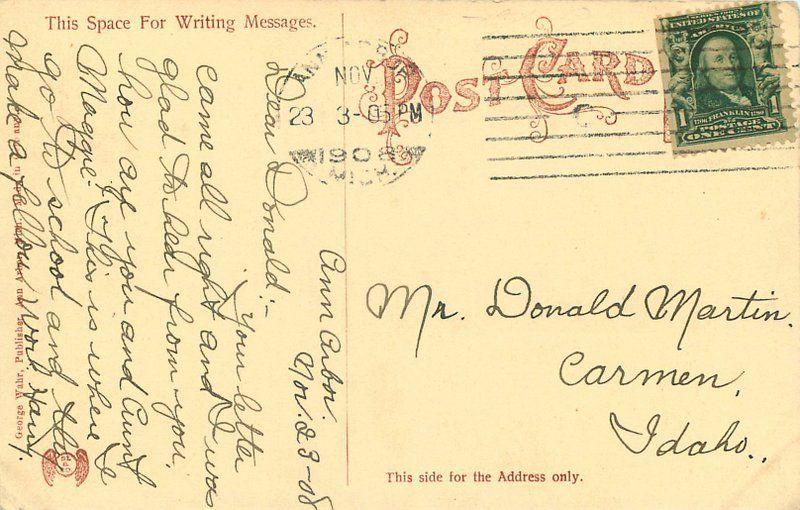 This Space For Writing Messages.
POST CARD
NOV
23 3-05 PM
1908
MICH.
UNITED STATES OF
AMERICA
1 FRANKLIN 1
POSTAGE
ONE CENT
Ann Arbor.
Nov. 23-08
Dear Donald:-
Your letter
came all right and I was
glad to hear from you.
how are you and Aunt
Maggie? This is where I
go to school and they
make a fellow work hard.
Mr. Donald Martin.
Carmen,
Idaho.
This side for the Address only.
George Wahr, Publisher, Ann Arbor, Mich.